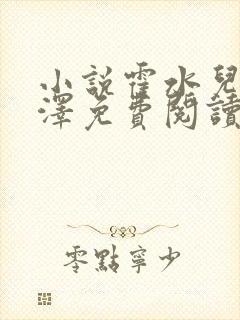 小說霍水兒
澤免費閱讀
零點寧少